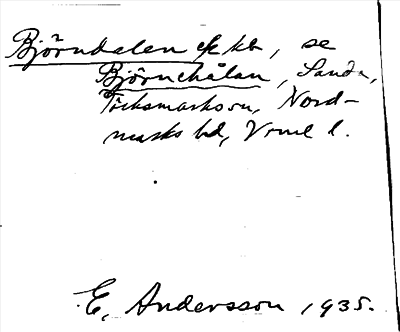 Björndalen ek ktr, se
Björnehålan, Sanda,
Töcksmarks sn, Nord-
marks hd, Vrml l.
E. Andersson 1935.